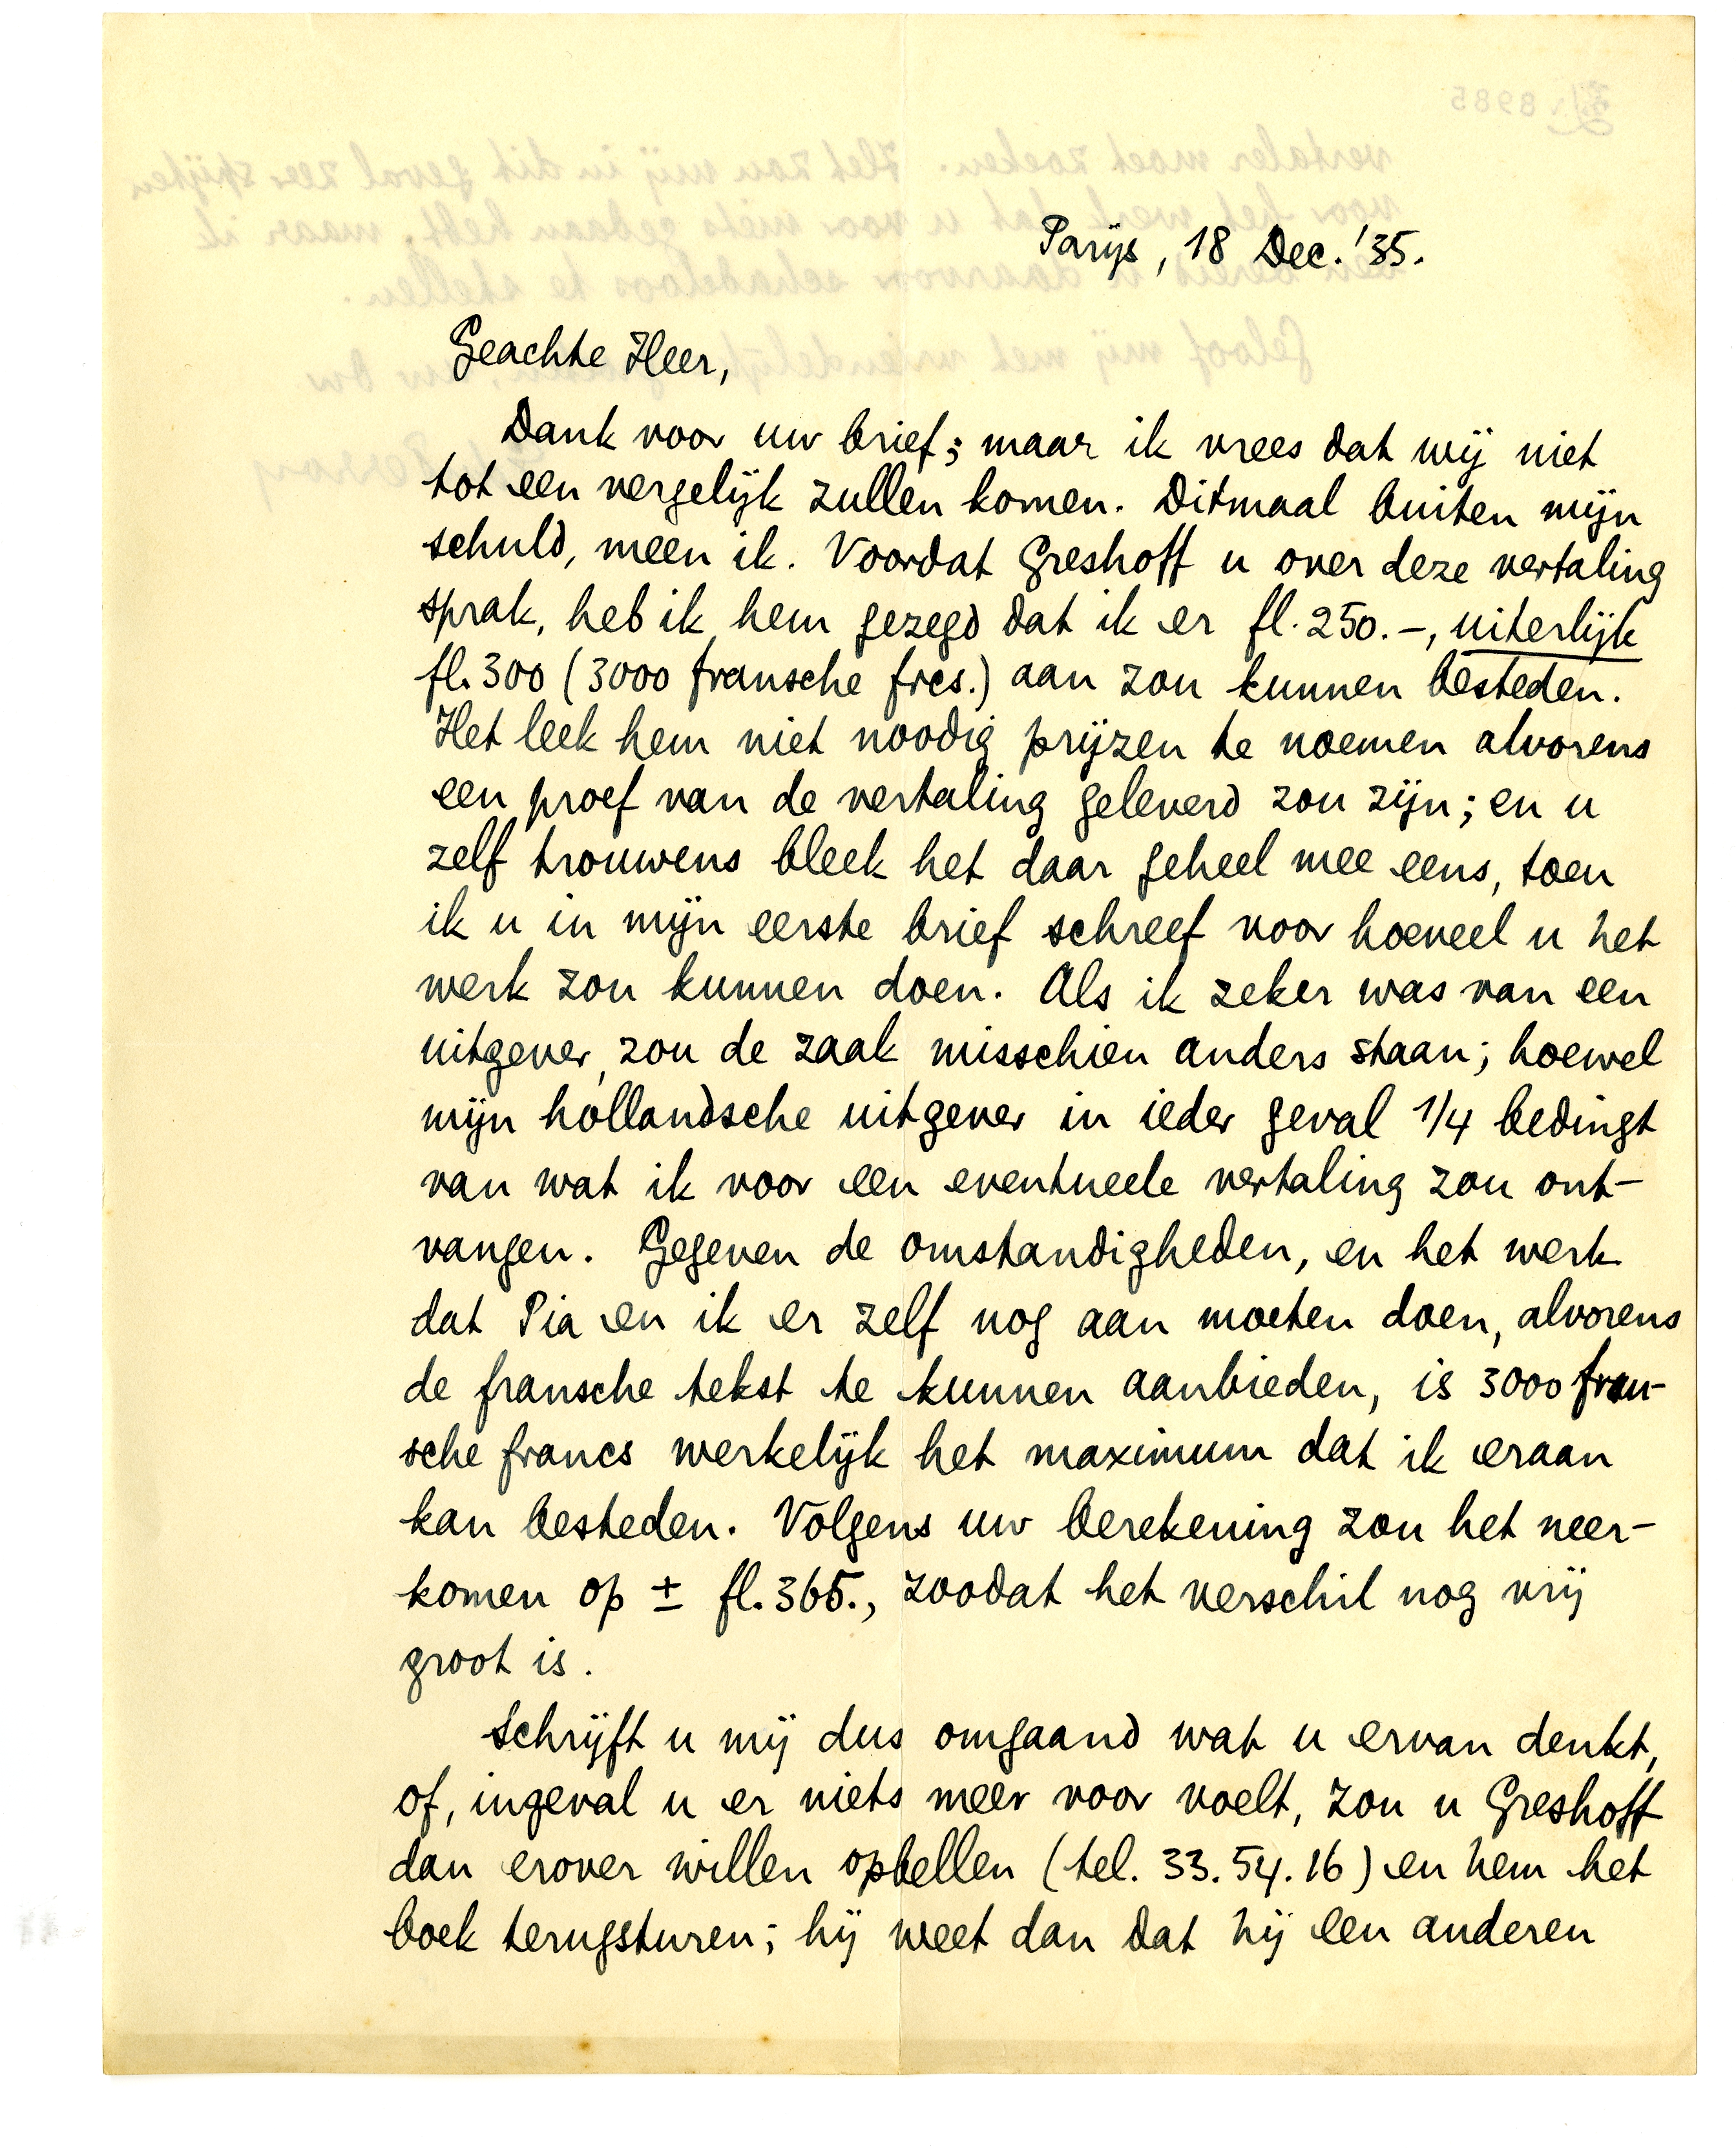 Parijs, 18 Dec. '35.
Geachte Heer,
Dank voor uw brief; maar ik vrees dat wij niet
tot een vergelijk zullen komen. Ditmaal buiten mijn
schuld, meen ik. Voordat Greshoff u over deze vertaling
sprak, heb ik hem gezegd dat ik er fl. 250.-, uiterlijk
fl. 300 (3000 fransche frcs.) aan zou kunnen besteden.
Het leek hem niet noodig prijzen te noemen alvorens
een proef van de vertaling geleverd zou zijn; en u
zelf trouwens bleek het daar geheel mee eens, toen
ik u in mijn eerste brief schreef voor hoeveel u het
werk zou kunnen doen. Als ik zeker was van een
uitgever, zou de zaak misschien anders staan; hoewel
mijn hollandsche uitgever in ieder geval 1/4 bedingt
van wat ik voor een eventueele vertaling zou ont-
vangen. Gegeven de omstandigheden, en het werk
dat Pia en ik er zelf nog aan moeten doen, alvorens
de fransche tekst te kunnen aanbieden, is 3000 fran-
sche francs werkelijk het maximum dat ik eraan
kan besteden. Volgens uw berekening zou het neer-
komen op ± fl. 365., zoodat het verschil nog vrij
groot is.
Schrijft u mij dus omgaand wat u ervan denkt,
of, ingeval u er niets meer voor voelt, zou u Greshoff
dan erover willen opbellen (tel. 33.54.16) en hem het
boek terugsturen; hij weet dan dat hij een anderen